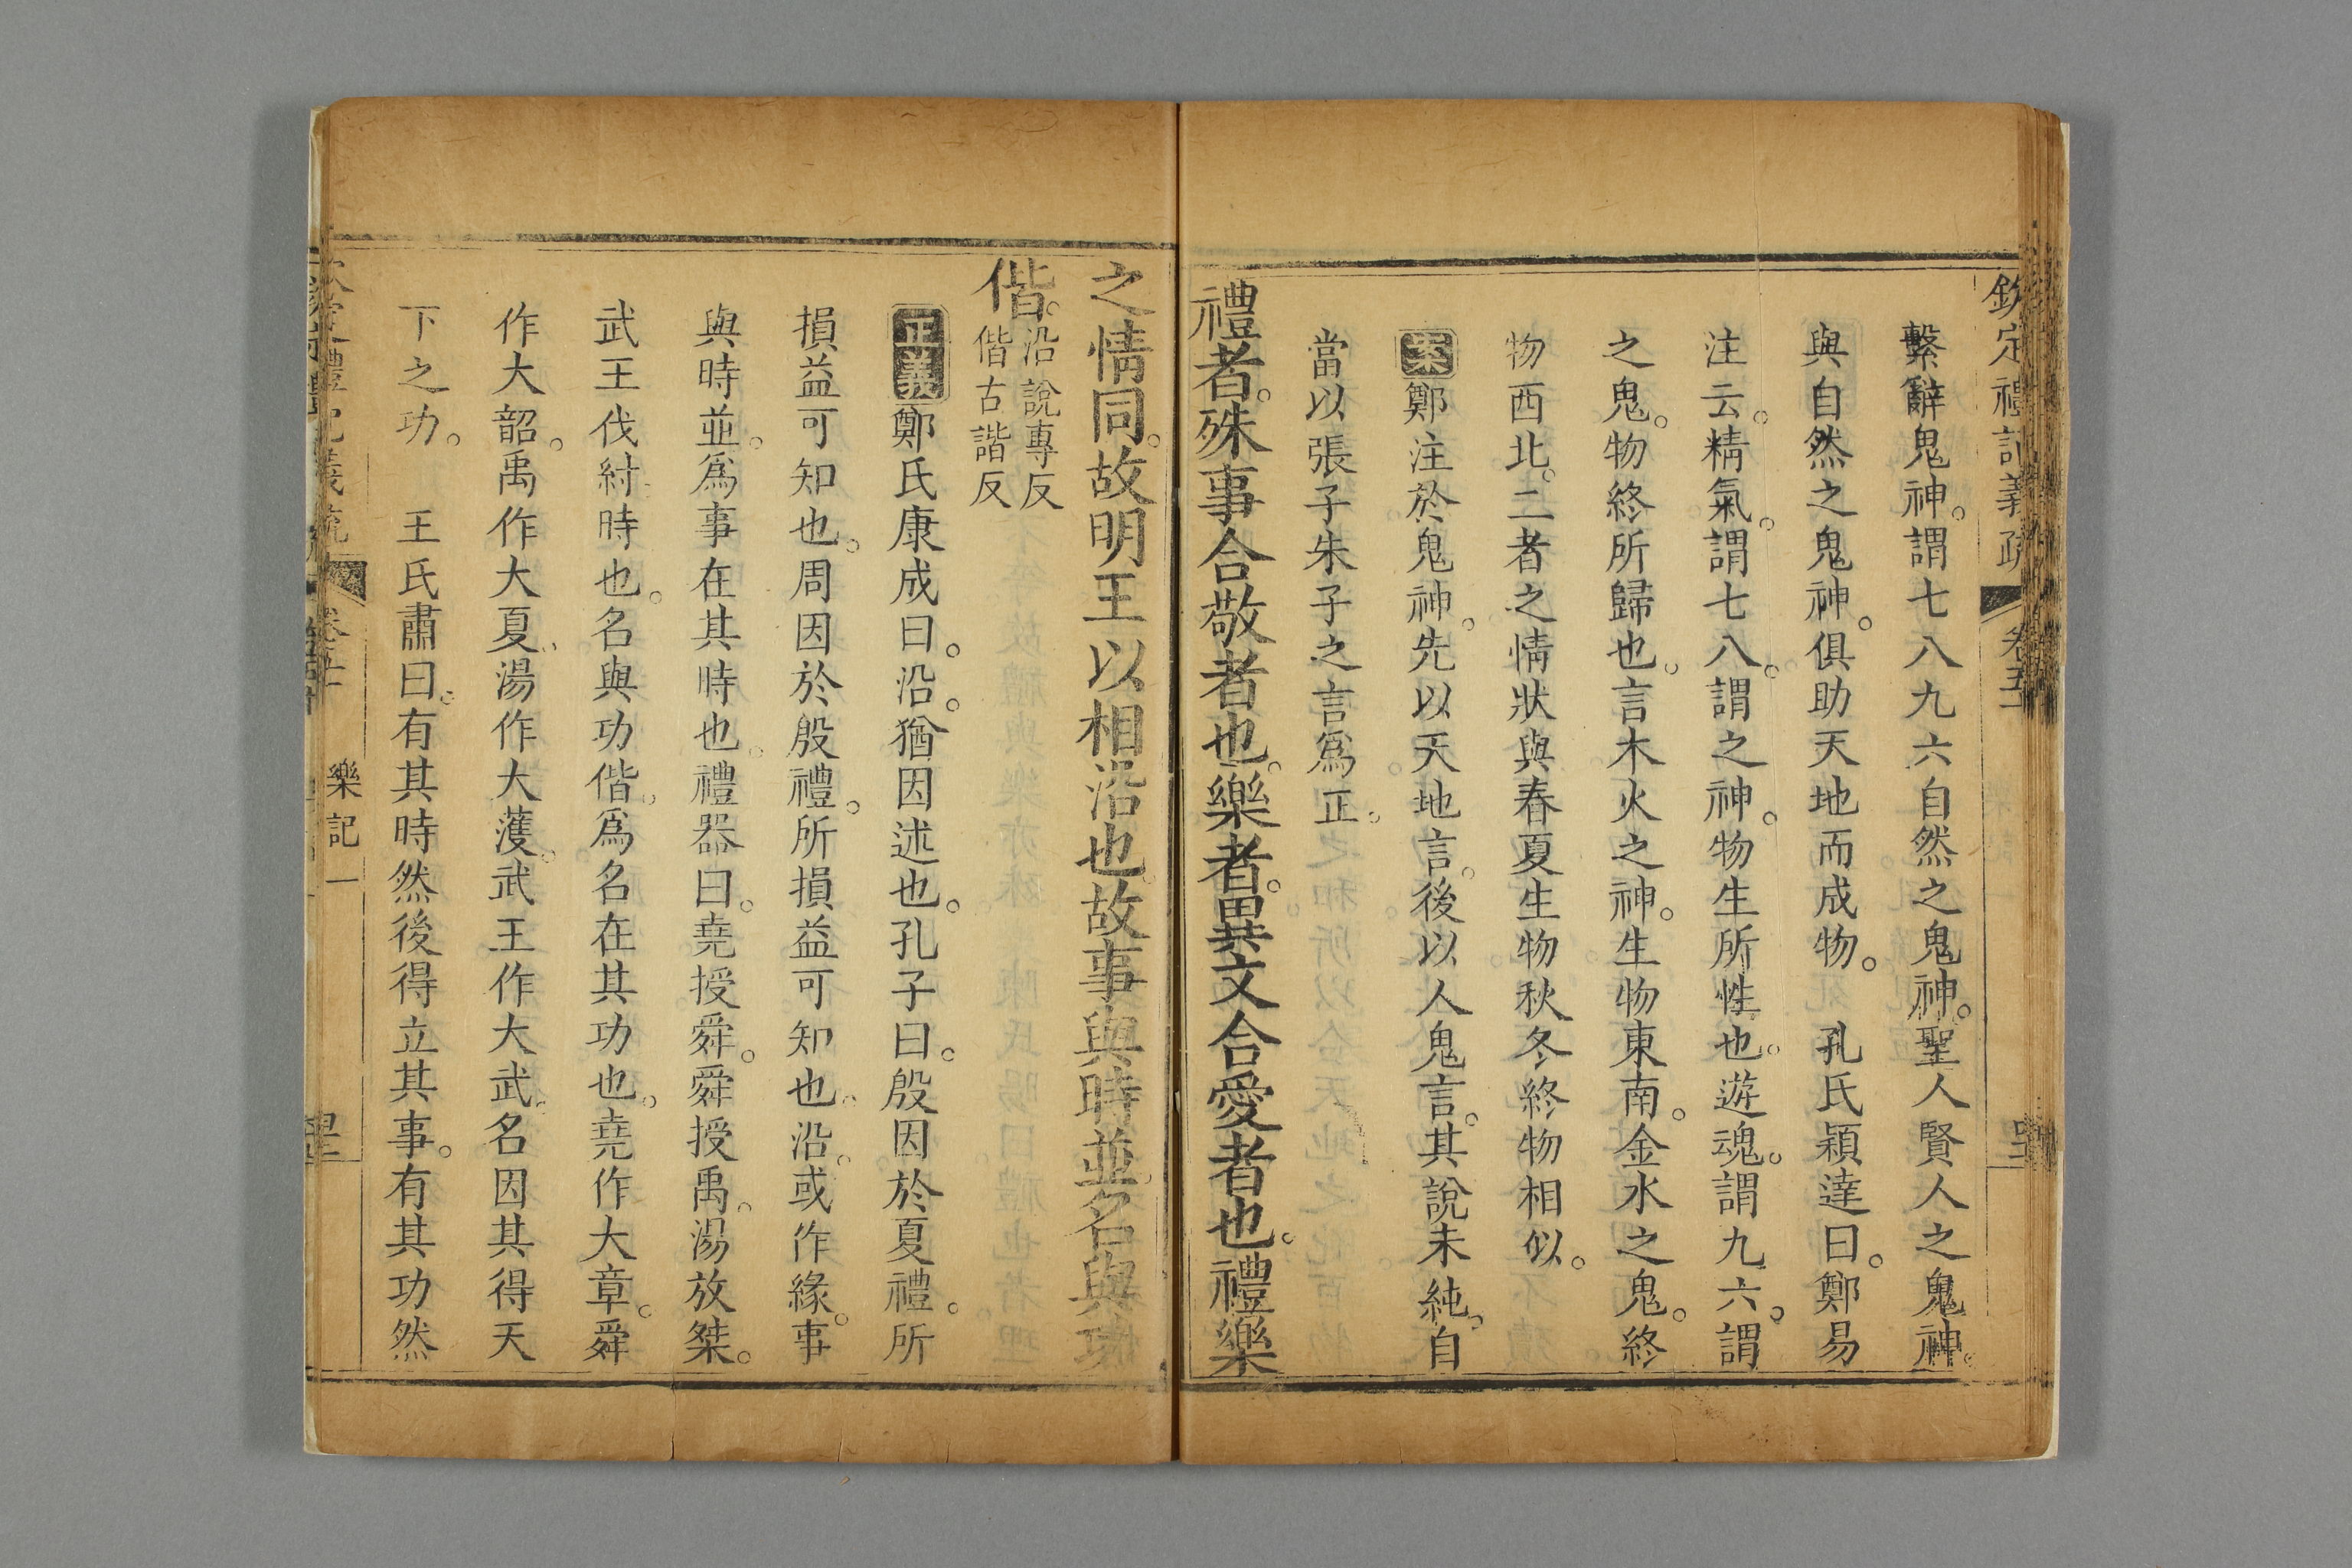 欽定禮記義疏 卷五
繫辭鬼神。謂七八九六自然之鬼神。聖人賢人之鬼神。
與自然之鬼神。俱助天地而成物。 孔氏穎達曰。鄭易
注云。精氣。謂七八。謂之神。物生所性也。遊魂。謂九六。謂
之鬼。物終所歸也。言木火之神。生物東南。金水之鬼。終
物西北。二者之情狀與春夏生物秋冬終物相似。
案鄭注於鬼神。先以天地言。後以人鬼言。其說未純。自
當以張子朱子之言爲正。
禮者。殊事合敬者也。樂者。異文合愛者也。禮樂
之情同。故明王以相沿也。故事與時並。名與功
偕。沿說專反
偕古諧反
正義鄭氏康成曰。沿。猶因述也。孔子曰。殷因於夏禮。所
損益可知也。周因於殷禮。所損益可知也。沿。或作緣。事
與時並。爲事在其時也。禮器曰。堯授舜。舜授禹。湯放桀。
武王伐紂時也。名與功偕。爲名在其功也。堯作大章。舜
作大韶。禹作大夏。湯作大濩。武王作大武。名因其得天
下之功。 王氏肅曰。有其時然後得立其事。有其功然
樂記一